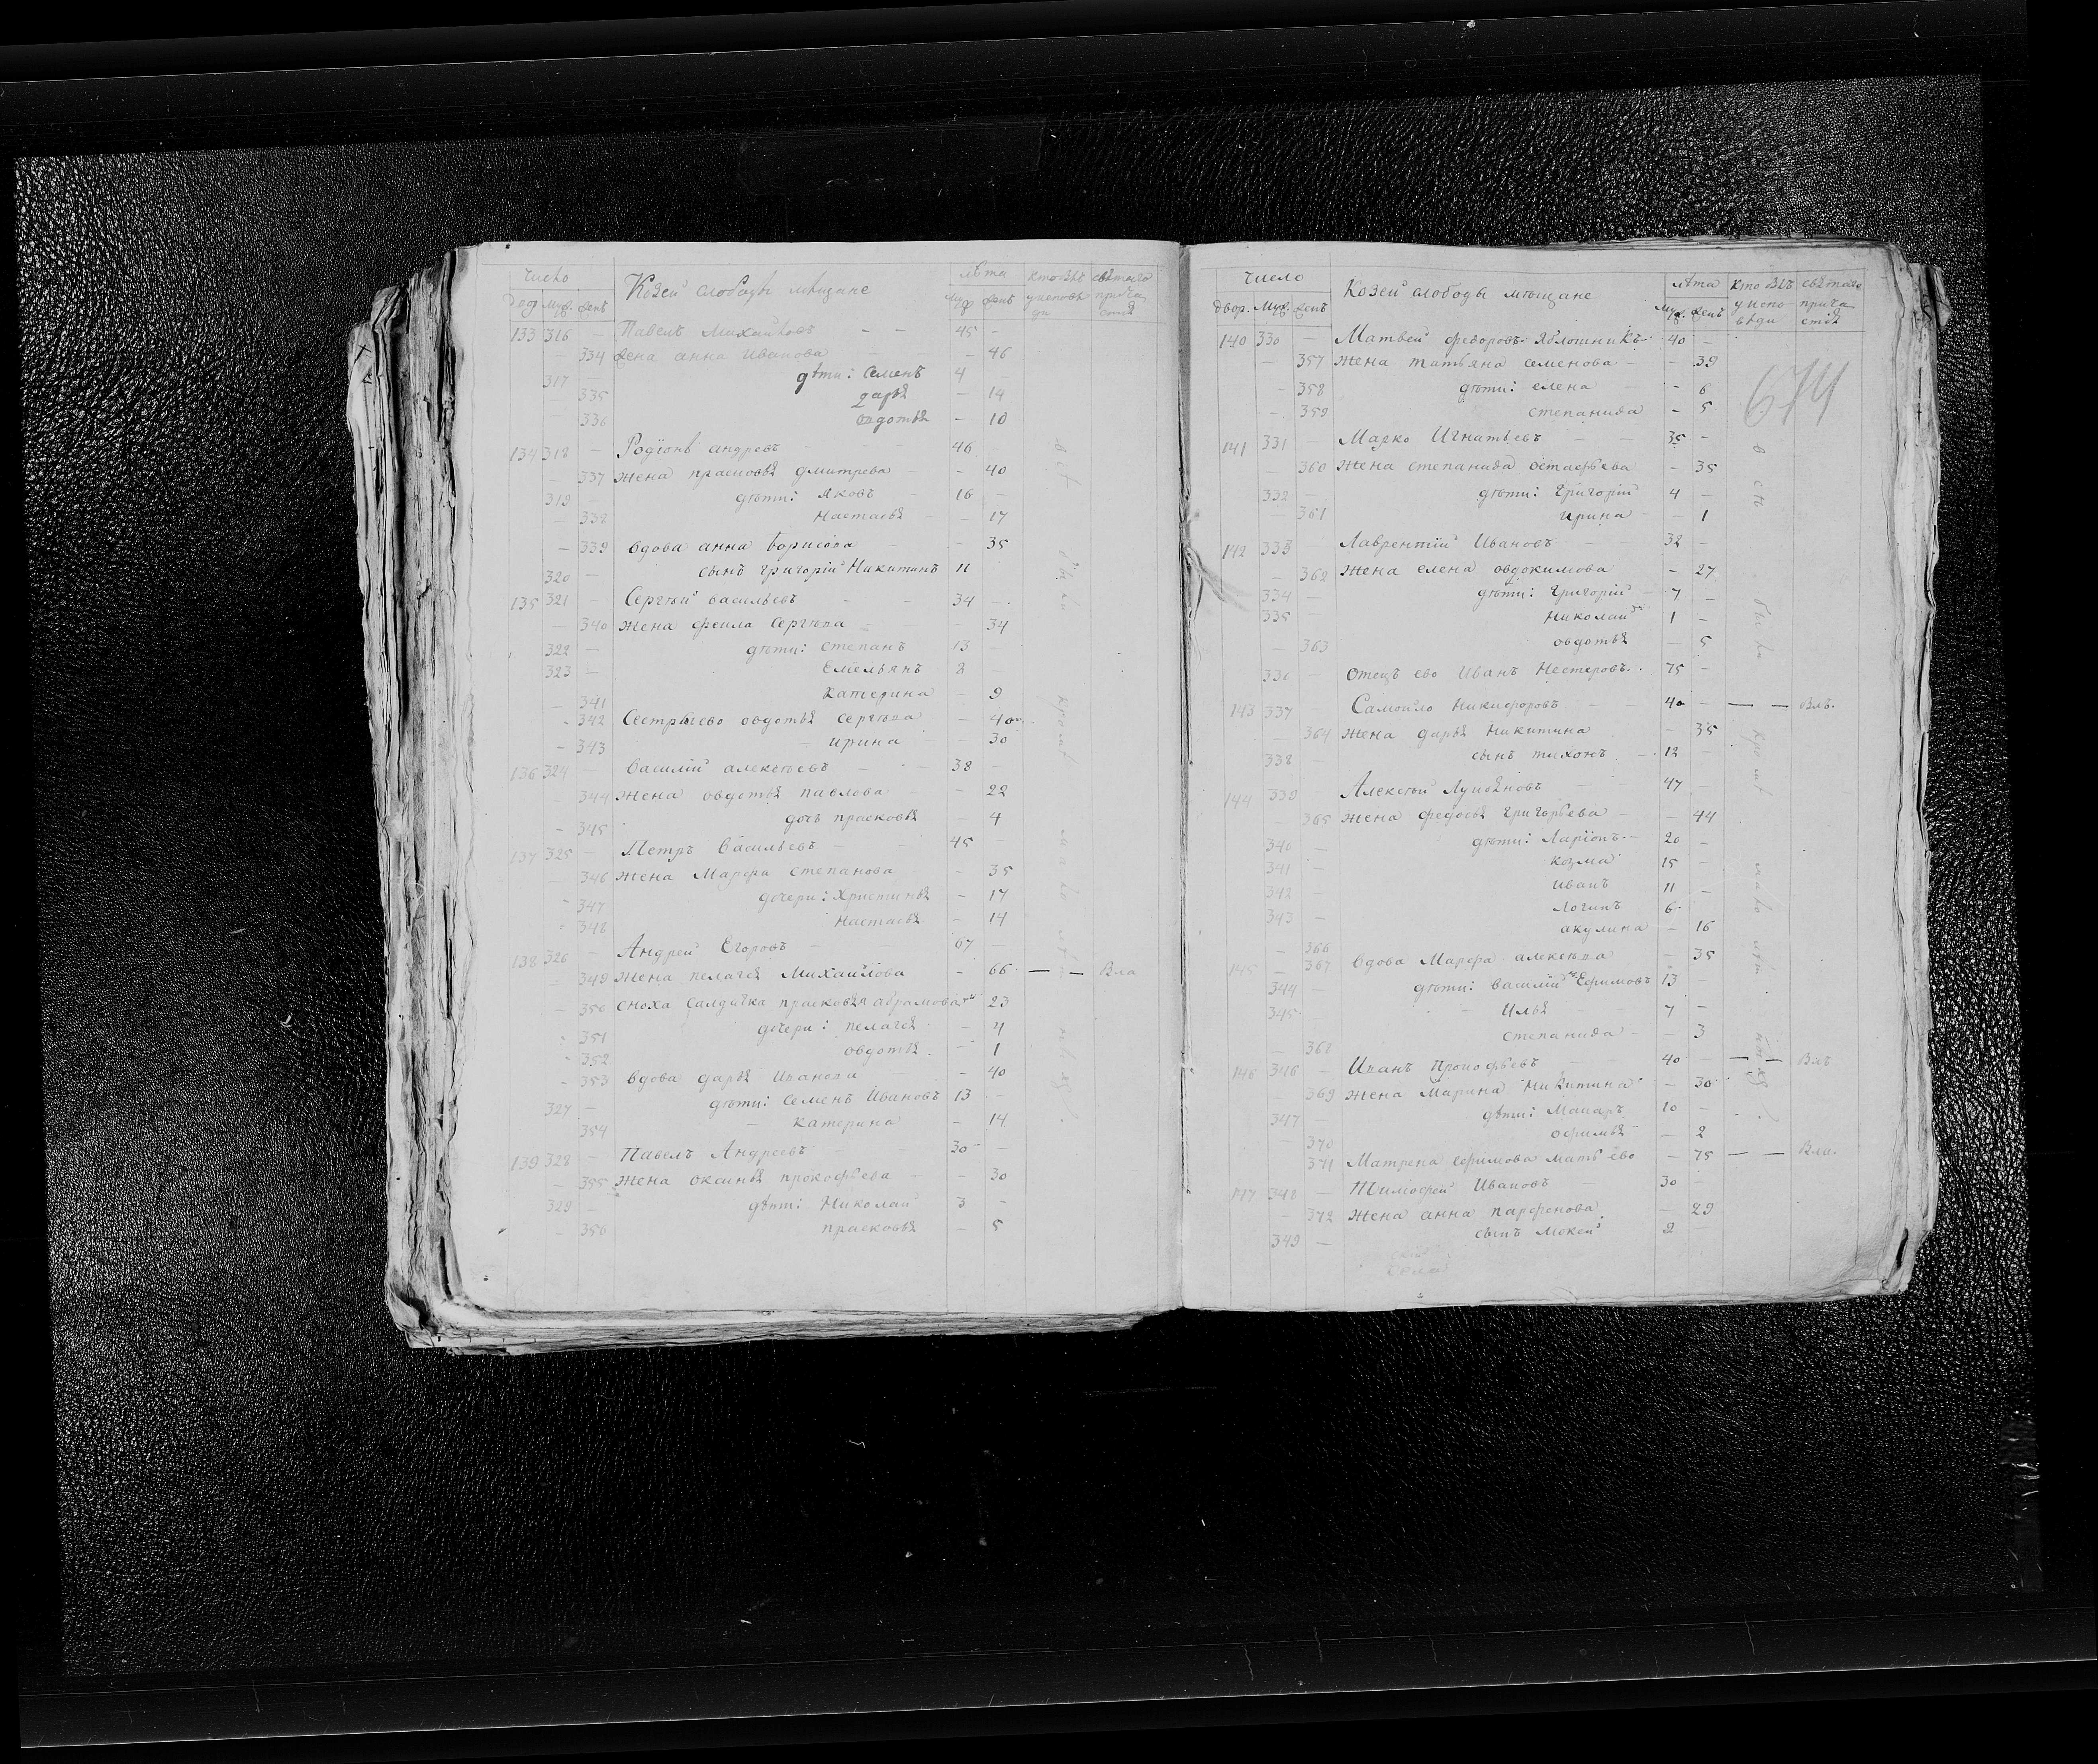 Число Козей слободы мѣщане лѣта
Муж. жен.
133 316 – Павелъ Михайловъ – – 45 –
– 334 жена анна Иванова – – 46
317 дѣти: Семенъ 4
335 дарья – 14
336 овдотья – 10
134 318 – Родіонъ андреевъ – 46 –
– 337 жена прасковья дмитрева – 40
319 – дѣти: яковъ 16 –
– 338 Настасья – 17
– 339 вдова анна борисова – 35
320 – сынъ григорій Никитинъ 11
135 321 – Сергѣй васильевъ – 34 –
– 340 жена Сергѣва – 34
322 – дѣти: степанъ 13
323 – Емельянъ 2
– 341 катерина – 9
– 342 Сестры ево овдотья сергѣва – 40
– 343 ирина – 30
136 324 – василій алексѣевъ – 38 –
344 жена овдотья павлова – 22
– 345 дочь прасковья – 4
137 325 – Петръ васильевъ – 45
– 346 жена Марфа степанова – 35
– 347 дочери: Христинья – 17
– 348 Настасья – 14
138 326 – Андрей Егоровъ – 67
– 349 жена пелагея Михайлова – 66 – – Вла
– 350 сноха салдатка прасковья абрамова 23
– 351 дочери: пелагея – 4
– 352 овдотья – 1
– 353 вдова дарья Иванова – 40
327 – дѣти: семенъ Ивановъ 13 –
354 – катерина – 14
139 328 – Павелъ Андреевъ – 30 –
– 355 жена оксинья прокофьева – 30
329 – дѣти: Николай 3 –
– 356 прасковья – 5
всѣ были кромѣ мало лѣт
Число Козей слободы мѣщане лѣта кто былъ у испо вѣди святаго прича стія
двор. Муж. жен. Муж. жен.
674
140 330 – Матвей федоровъ яблошникъ 40 –
– 357 жена татьяна семенова – – 39
– 358 дѣти: елена – – 6
– 359 степанида – 5
141 331 – Марко Игнатьевъ – – 35 –
– 360 жена степанида остафьева – 35
332 – дѣти: григорій 4 –
– 361 ирина – – 1
142 333 – Лаврентій Ивановъ – 32 –
– 362 жена елена овдокимова – 27
334 – дѣти: григорій – 7 –
335 Николай 1 –
– 363 овдотья – 5
336 – отецъ ево Иванъ Нестеровъ 75 –
143 337 – Самойло Никифоровъ – – 40 – – – Влъ.
– 364 жена дарья Никитина – 35
338 – сынъ тихонъ – 12 –
144 339 Алексѣй Лукьяновъ – – 47
– 365 жена федосья григорьева – – 44
340 – дѣти: Ларіонъ – 20 –
341 – козма 15 –
342 – иванъ 11 –
343 – логинъ 6
– 366 акулина – 16
145 – 367 вдова Марфа алексѣва – 35
344 – дѣти: василій Ефимовъ 13 –
345 – – Илья – 7 –
– 368 степанида – – 3
146 346 – Иванъ Прокофьевъ – 40 – – – Влъ
– 369 жена Марина Никитина – 30
347 – дѣти: Макаръ 10 –
– 370 офимья – 2
371 Матрена ефимова мать ево – 75 – – Вла.
147 348 – Тимофей Ивановъ – 30 –
– 372 жена анна парфенова – 29
349 – сынъ Мокей 2 –
всѣ были кромѣ мало лѣт